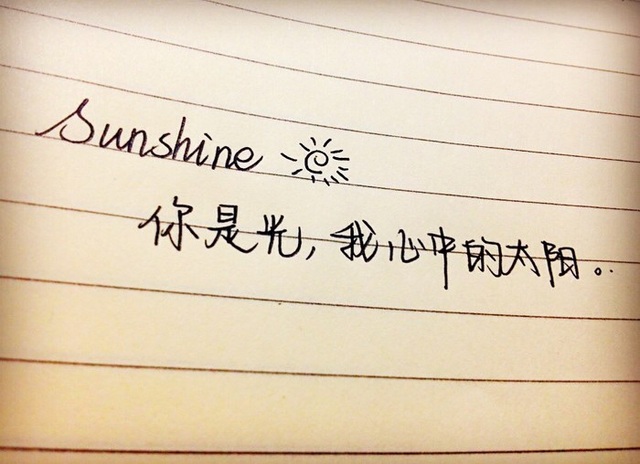 Sunshine
你是光，我心中的太阳。